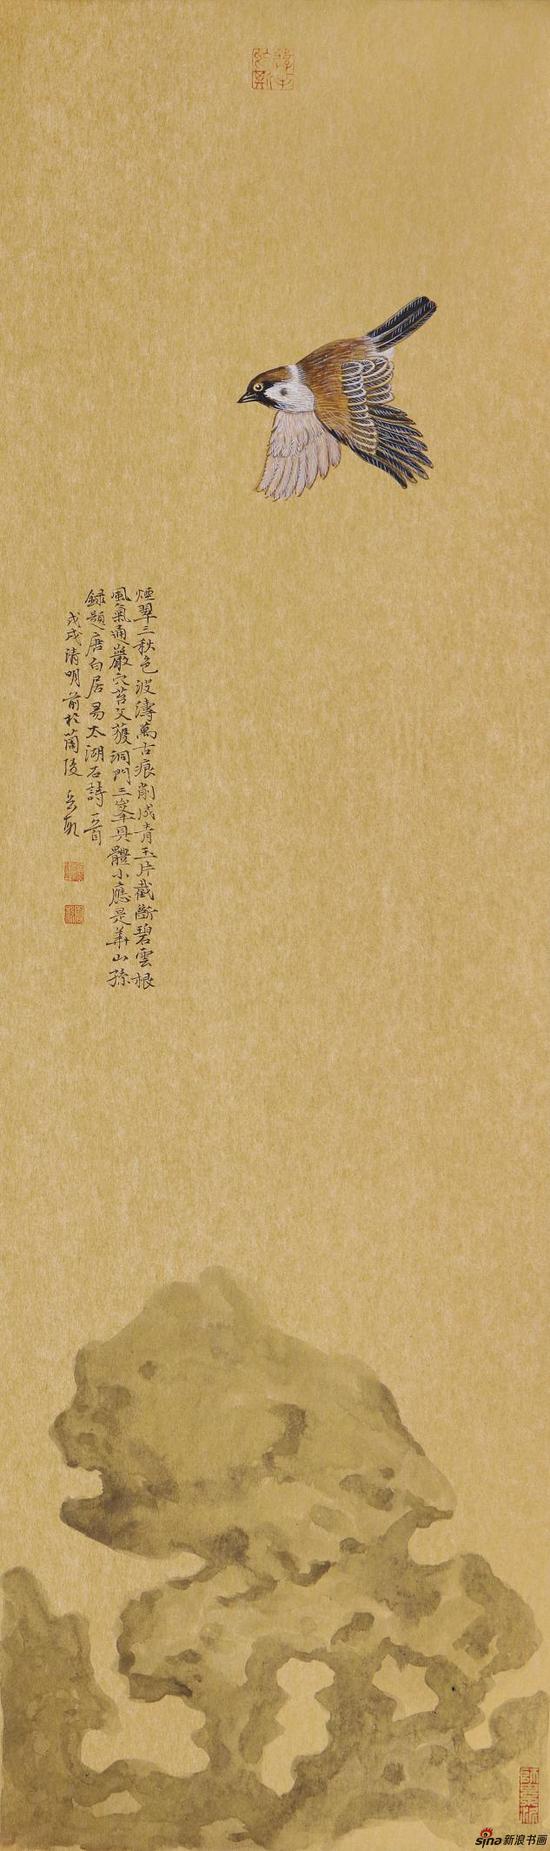 煙翠三秋色波濤萬古痕削成青玉片截斷碧雲根
風氣通巖穴苔文護洞門三峯具體小應是華山孫
録題唐白居易太湖石詩一首
戊戌清明前於蘭陵
sina新浪书画